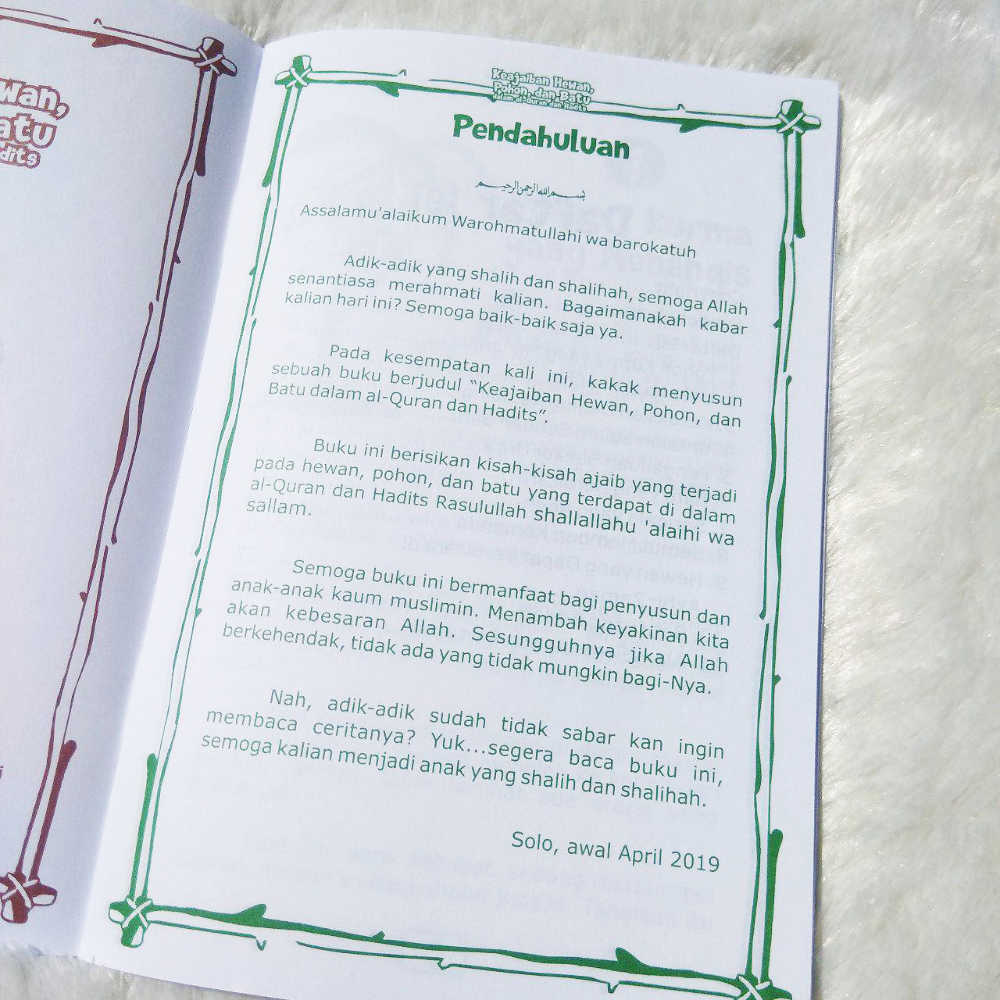 wan,
atu
dits
Keajaiban Hewan,
Pohon, dan Batu
dalam al-Quran dan Hadits
Pendahuluan
بسم الله الرحمن الرحيم
Assalamu'alaikum Warohmatullahi wa barokatuh
Adik-adik yang shalih dan shalihah, semoga Allah
senantiasa merahmati kalian. Bagaimanakah kabar
kalian hari ini? Semoga baik-baik saja ya.
Pada kesempatan kali ini, kakak menyusun
sebuah buku berjudul “Keajaiban Hewan, Pohon, dan
Batu dalam al-Quran dan Hadits”.
Buku ini berisikan kisah-kisah ajaib yang terjadi
pada hewan, pohon, dan batu yang terdapat di dalam
al-Quran dan Hadits Rasulullah shallallahu 'alaihi wa
sallam.
Semoga buku ini bermanfaat bagi penyusun dan
anak-anak kaum muslimin. Menambah keyakinan kita
akan kebesaran Allah. Sesungguhnya jika Allah
berkehendak, tidak ada yang tidak mungkin bagi-Nya.
Nah, adik-adik sudah tidak sabar kan ingin
membaca ceritanya? Yuk...segera baca buku ini,
semoga kalian menjadi anak yang shalih dan shalihah.
Solo, awal April 2019